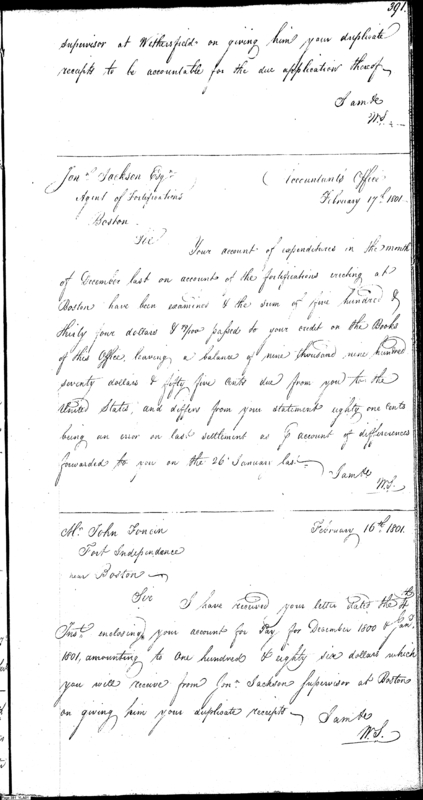 391.
Supervisor at Wethersfield on giving him your duplicate
receipts to be accountable for the due application thereof
I am &c
W.S.
Jon.ª Jackson Esqr
Agent of Fortifications
Boston
Accountants Office
February 17th 1801.
Sir
Your account of expenditures in the month
of December last on account of the fortifications erecting at
Boston have been examined & the sum of five hundred &
thirty four dollars & /100 passed to your credit on the Books
of this Office, leaving a balance of nine thousand nine hundred
seventy dollars & fifty five cents due from you to the
United States, and differs from your statement eighty one cents
being an error on last settlement as p account of differences
forwarded to you on the 26 January last.
I am &c
W.S.
Mr John Foncin
Fort Independence
near Boston
February 16th 1801.
Sir
I have received your letter dated the 4th
Inst. enclosing your account for Pay for December 1800 & Jany.
1801, amounting to One hundred & eighty six dollars which
you will receive from Jon. Jackson Supervisor at Boston
on giving him your duplicate receipts
I am &c
W.S.